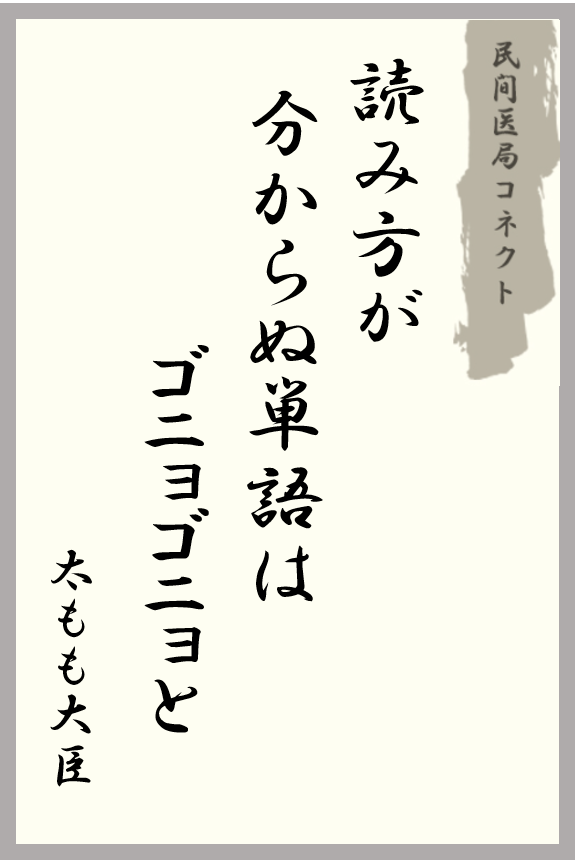 民間医局コネクト
読み方が
分からぬ単語は
ゴニョゴニョと
太もも大臣